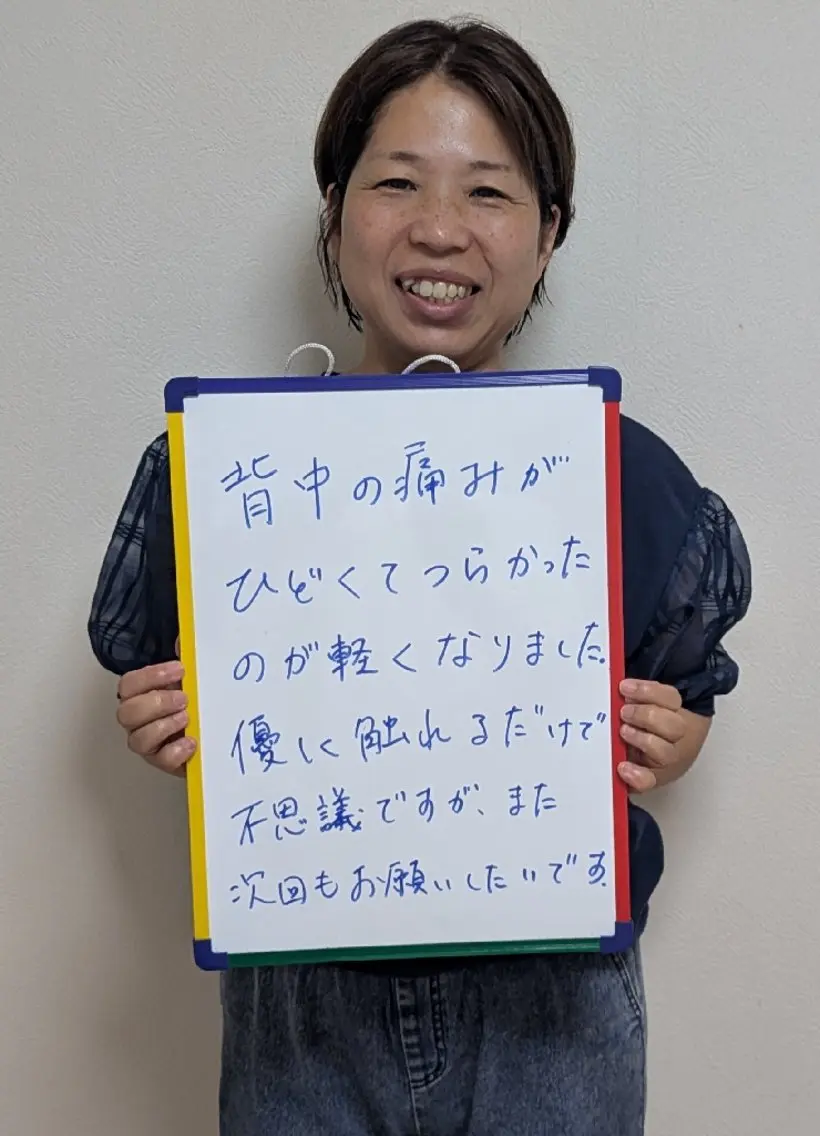 背中の痛みが
ひどくてつらかった
のが軽くなりました。
優しく触れるだけで
不思議ですが、また
次回もお願いしたいです。